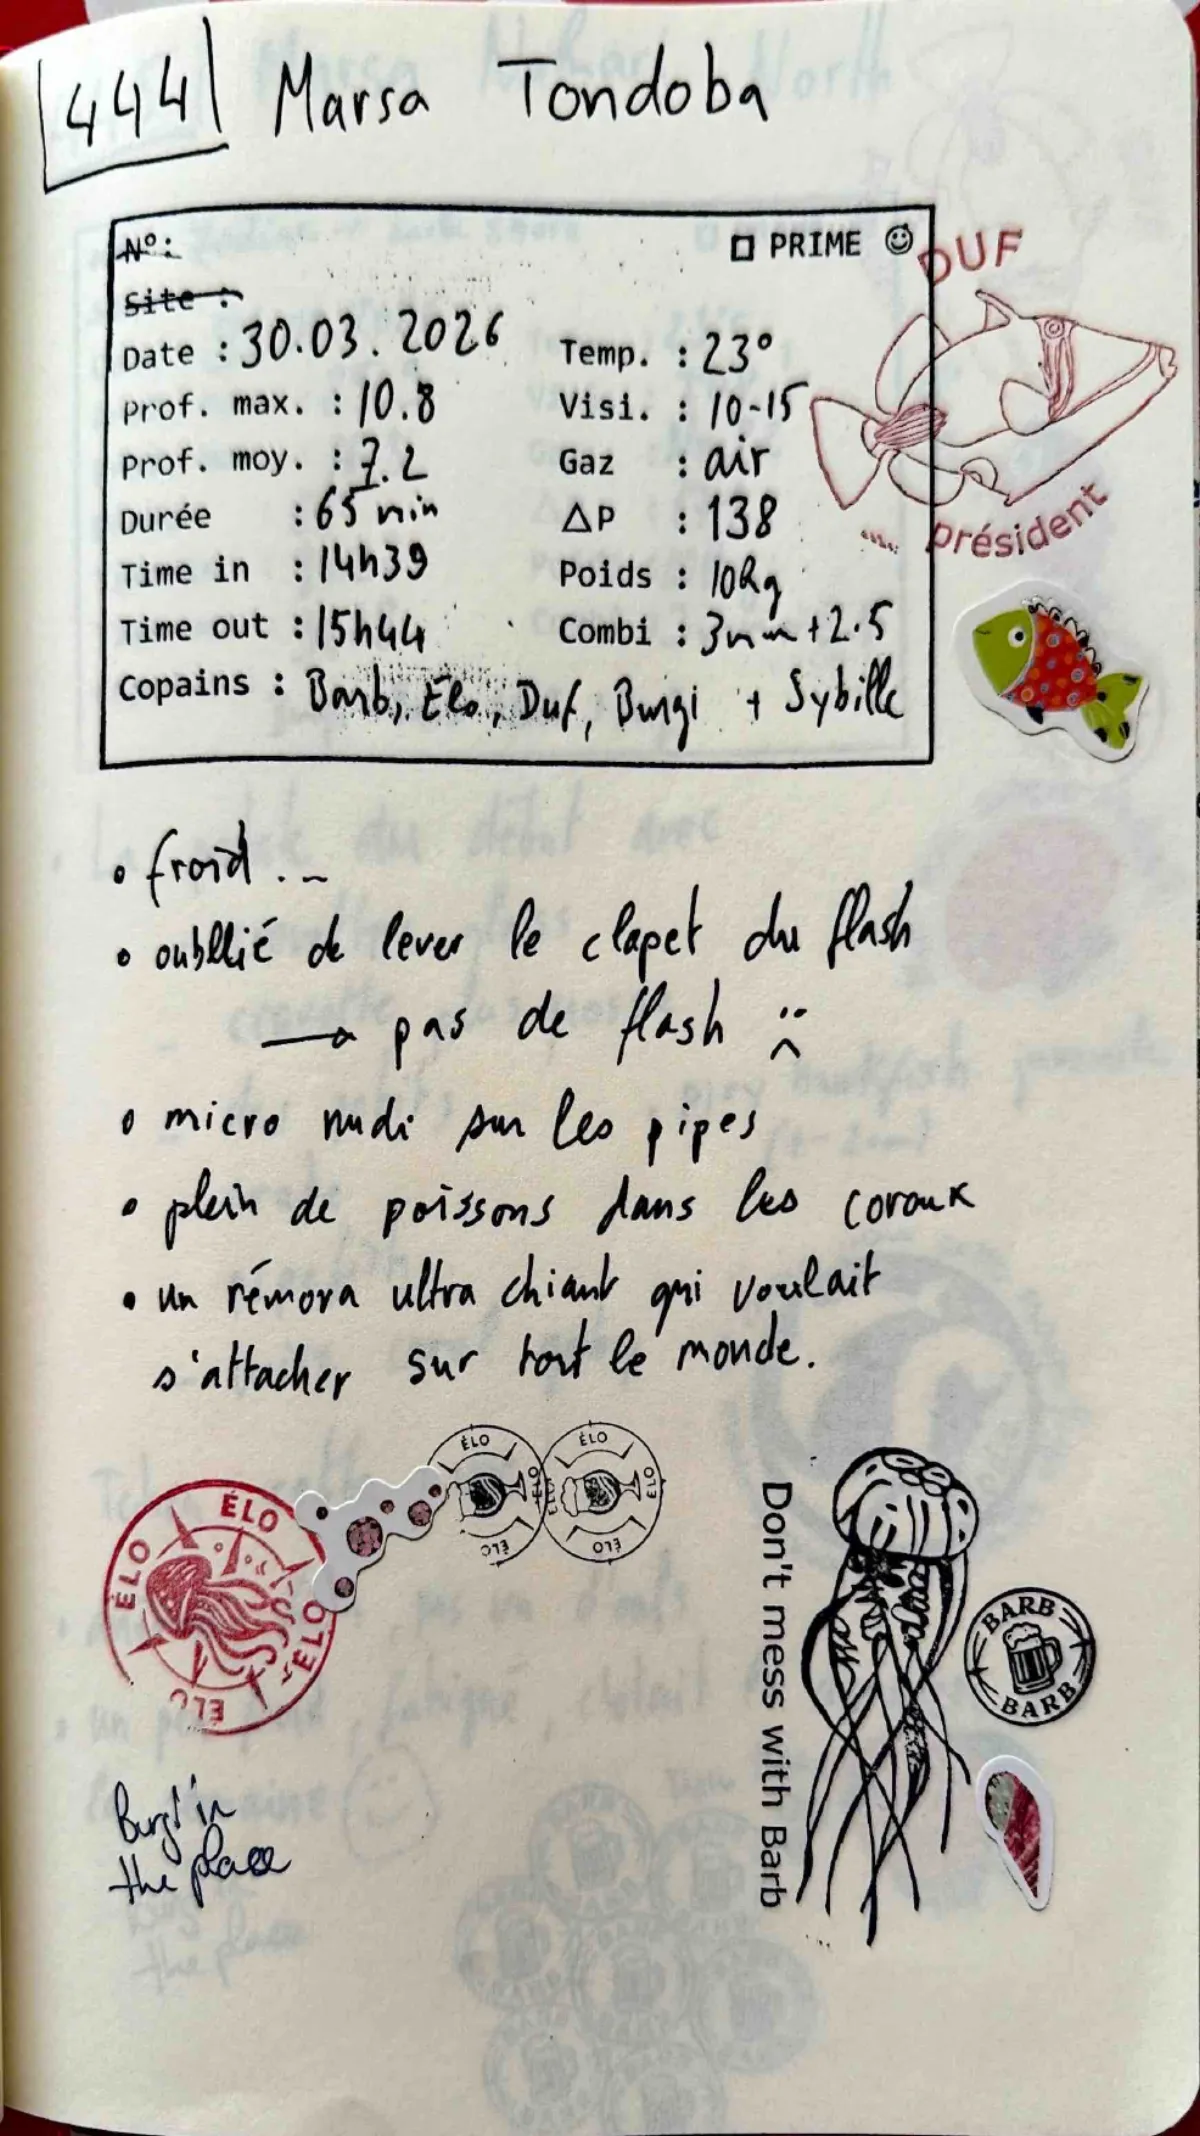 444 Marsa Tondoba
N°:
□ PRIME ☺
Site :
Date : 30.03.2026
Temp. : 23°
Prof. max. : 10.8
Visi. : 10-15
Prof. moy. : 7.2
Gaz : air
Durée : 65 min
ΔP : 138
Time in : 14h39
Poids : 10kg
Time out : 15h44
Combi : 3mm+2.5
Copains : Barb, Elo, Duf, Burgi + Sybille
DUF
président
• froid ...
• oubllié de lever le clapet du flash
→ pas de flash :(
• micro nudi sur les pipes
• plein de poissons dans les coraux
• un rémora ultra chiant qui voulait
s'attacher sur tout le monde.
ÉLO
ÉLO
ÉLO
ÉLO
ÉLO
ÉLO
ÉLO
ÉLO
ÉLO
ÉLO
ÉLO
ÉLO
Don't mess with Barb
BARB
BARB
Burgi in
the place